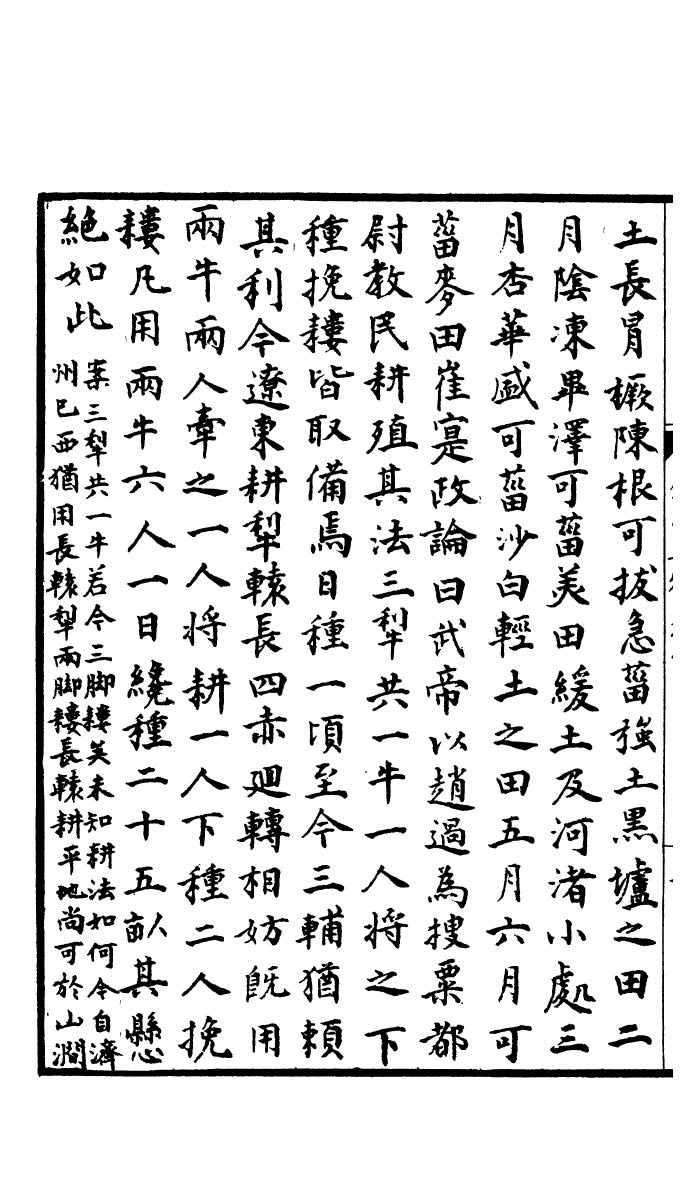 土長冒橛陳根可拔急菑強土黒壚之田二
月陰凍畢澤可菑美田緩土及河渚小處三
月杏華盛可菑沙白輕土之田五月六月可
菑麥田崔寔政論曰武帝以趙過為搜粟都
尉教民耕殖其法三犁共一牛一人将之下
種挽耬皆取備焉日種一頃至今三輔猶頼
其利今遼東耕犁轅長四赤廻轉相妨旣用
兩牛兩人牽之一人将耕一人下種二人挽
耬凡用兩牛六人一日纔種二十五畝其懸
絶如此
案三犁共一牛若今三脚耬矣未知耕法如何今自濟
州已西猶用長轅犁兩脚耬長轅耕平地尚可於山澗